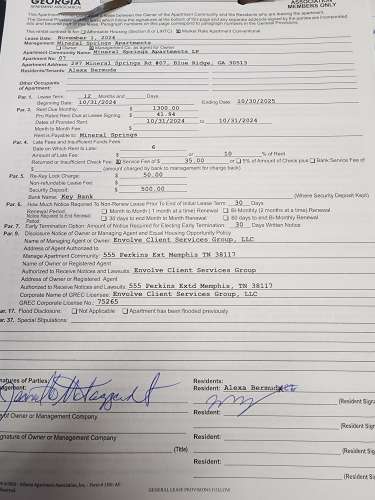 GEORGIA
ASSOCIATION
MEMBERS ONLY
Lease Date: November 1, 2024
Management: Mineral Springs Apartments
Owner Management Co. as Agent for Owner
Apartment Community Name: Mineral Springs Apartments LP
Apartment No: 07
Apartment Address: 297 Mineral Springs Rd #07, Blue Ridge, GA 30513
Residents/Tenants: Alexa Bermuda
Other Occupants
of Apartment:
Par. 1. Lease Term: 12 Months and Days
Beginning Date: 10/31/2024 Ending Date: 10/30/2025
Par. 2. Rent Due Monthly: $ 1300.00
Pro Rated Rent Due at Lease Signing: $ 41.94
Dates of Prorated Rent 10/31/2024 to 10/31/2024
Month to Month Fee $
Rent is Payable to: Mineral Springs
Par. 4. Late Fees and Insufficient Funds Fees:
Date on Which Rent Is Late: 6
Amount of Late Fee: $ or 10 % of Rent
Returned or Insufficient Check Fee: Service Fee of $ 35.00 or 5% of Amount of Check plus Bank Service Fee of
$ (amount charged by bank to management for charge back)
Par. 5. Re-Key Lock Charge: $ 50.00
Non-refundable Fee: $
Security Deposit: $ 500.00
Bank Name: Key Bank (Where Security Deposit Kept)
Par. 6. How Much Notice Required To Non-Renew Lease Prior To End of Initial Lease Term: 30 Days
Renewal Period: Month to Month ( 1 month at a time) Renewal Bi-Monthly (2 months at a time) Renewal
Notice Required to End Renewal Period: 30 days to end Month to Month Renewal 60 days to end Bi-Monthly Renewal
Par. 7. Early Termination Option: Amount of Notice Required for Electing Early Termination: 30 Days Written Notice
Par. 9. Disclosure Notice of Owner or Managing Agent and Equal Housing Opportunity Policy
Name of Managing Agent or Owner: Envolve Client Services Group, LLC
Address of Agent Authorized to
Manage Apartment Community: 555 Perkins Ext Memphis TN 38117
Name of Owner or Registered Agent
Authorized to Receive Notices and Lawsuits Envolve Client Services Group
Address of Owner or Registered Agent
Authorized to Receive Notices and Lawsuits 555 Perkins Extd Memphis, TN 38117
Corporate Name of GREC Licensee: Envolve Client Services Group, LLC
GREC Corporate License No.: 75265
ar. 17. Flood Disclosure: Not Applicable Apartment has been flooded previously
ar. 37. Special Stipulations:
natures of Parties:
agement:
Residents:
Resident: Alexa Bermuda
(Resident Sign
of Owner or Management Company
Resident:
(Resident Sign
gnature of Owner or Management Company
Resident:
(Title)
(Resident Sign
Resident:
GENERAL LEASE PROVISIONS FOLLOW